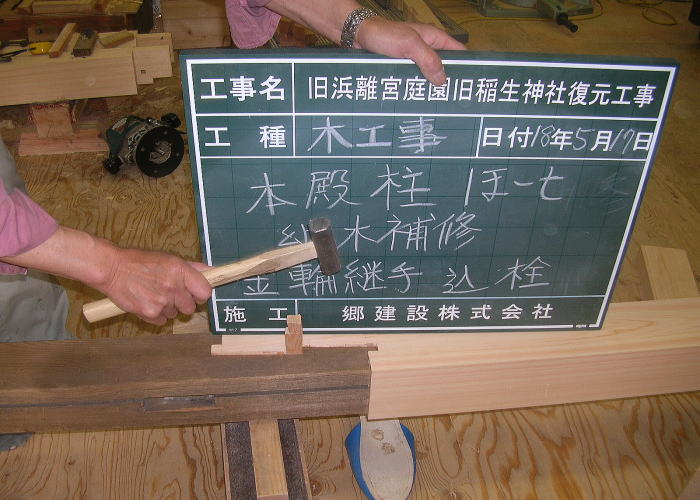 工事名 旧浜離宮庭園旧稲生神社復元工事
工種 木工事 日付18年5月17日
本殿柱 ほ-七
木補修
金輪継手 込栓
施工 郷建設株式会社